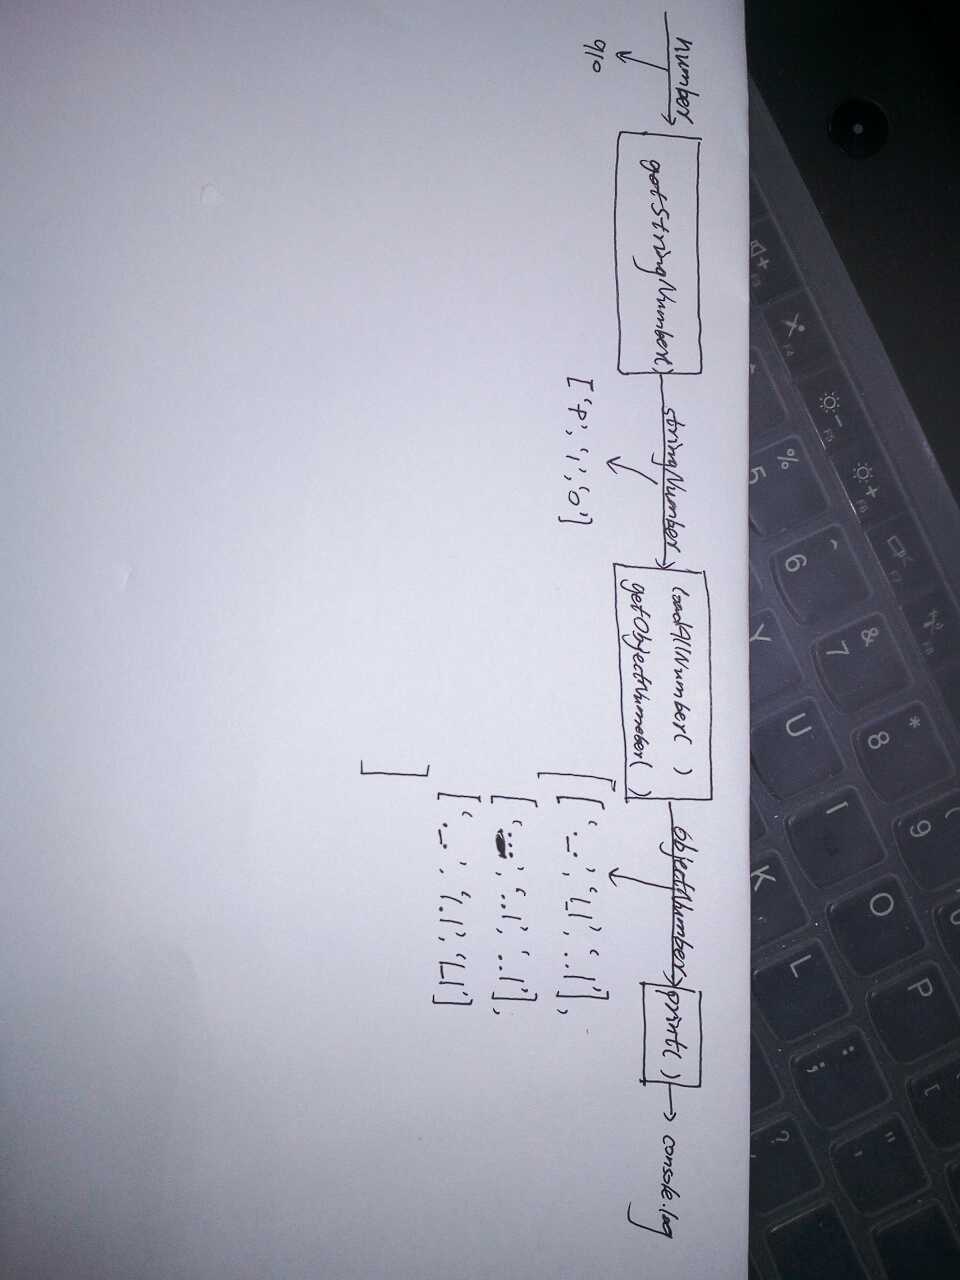 number
910
getStringNumber()
stringNumber
['9','1','0']
loadAllNumber( )
getObjectNumeber( )
objectNumber
[
['._.','|_|','..|'],
['...','..|','..|'],
['._.','|.|','|_|']
]
print( )
console.log
F4
F5
F6
F7
F8
%
5
^
6
&
7
*
8
(
9
Y
U
I
O
P
K
L
:
;
"
'
[
?